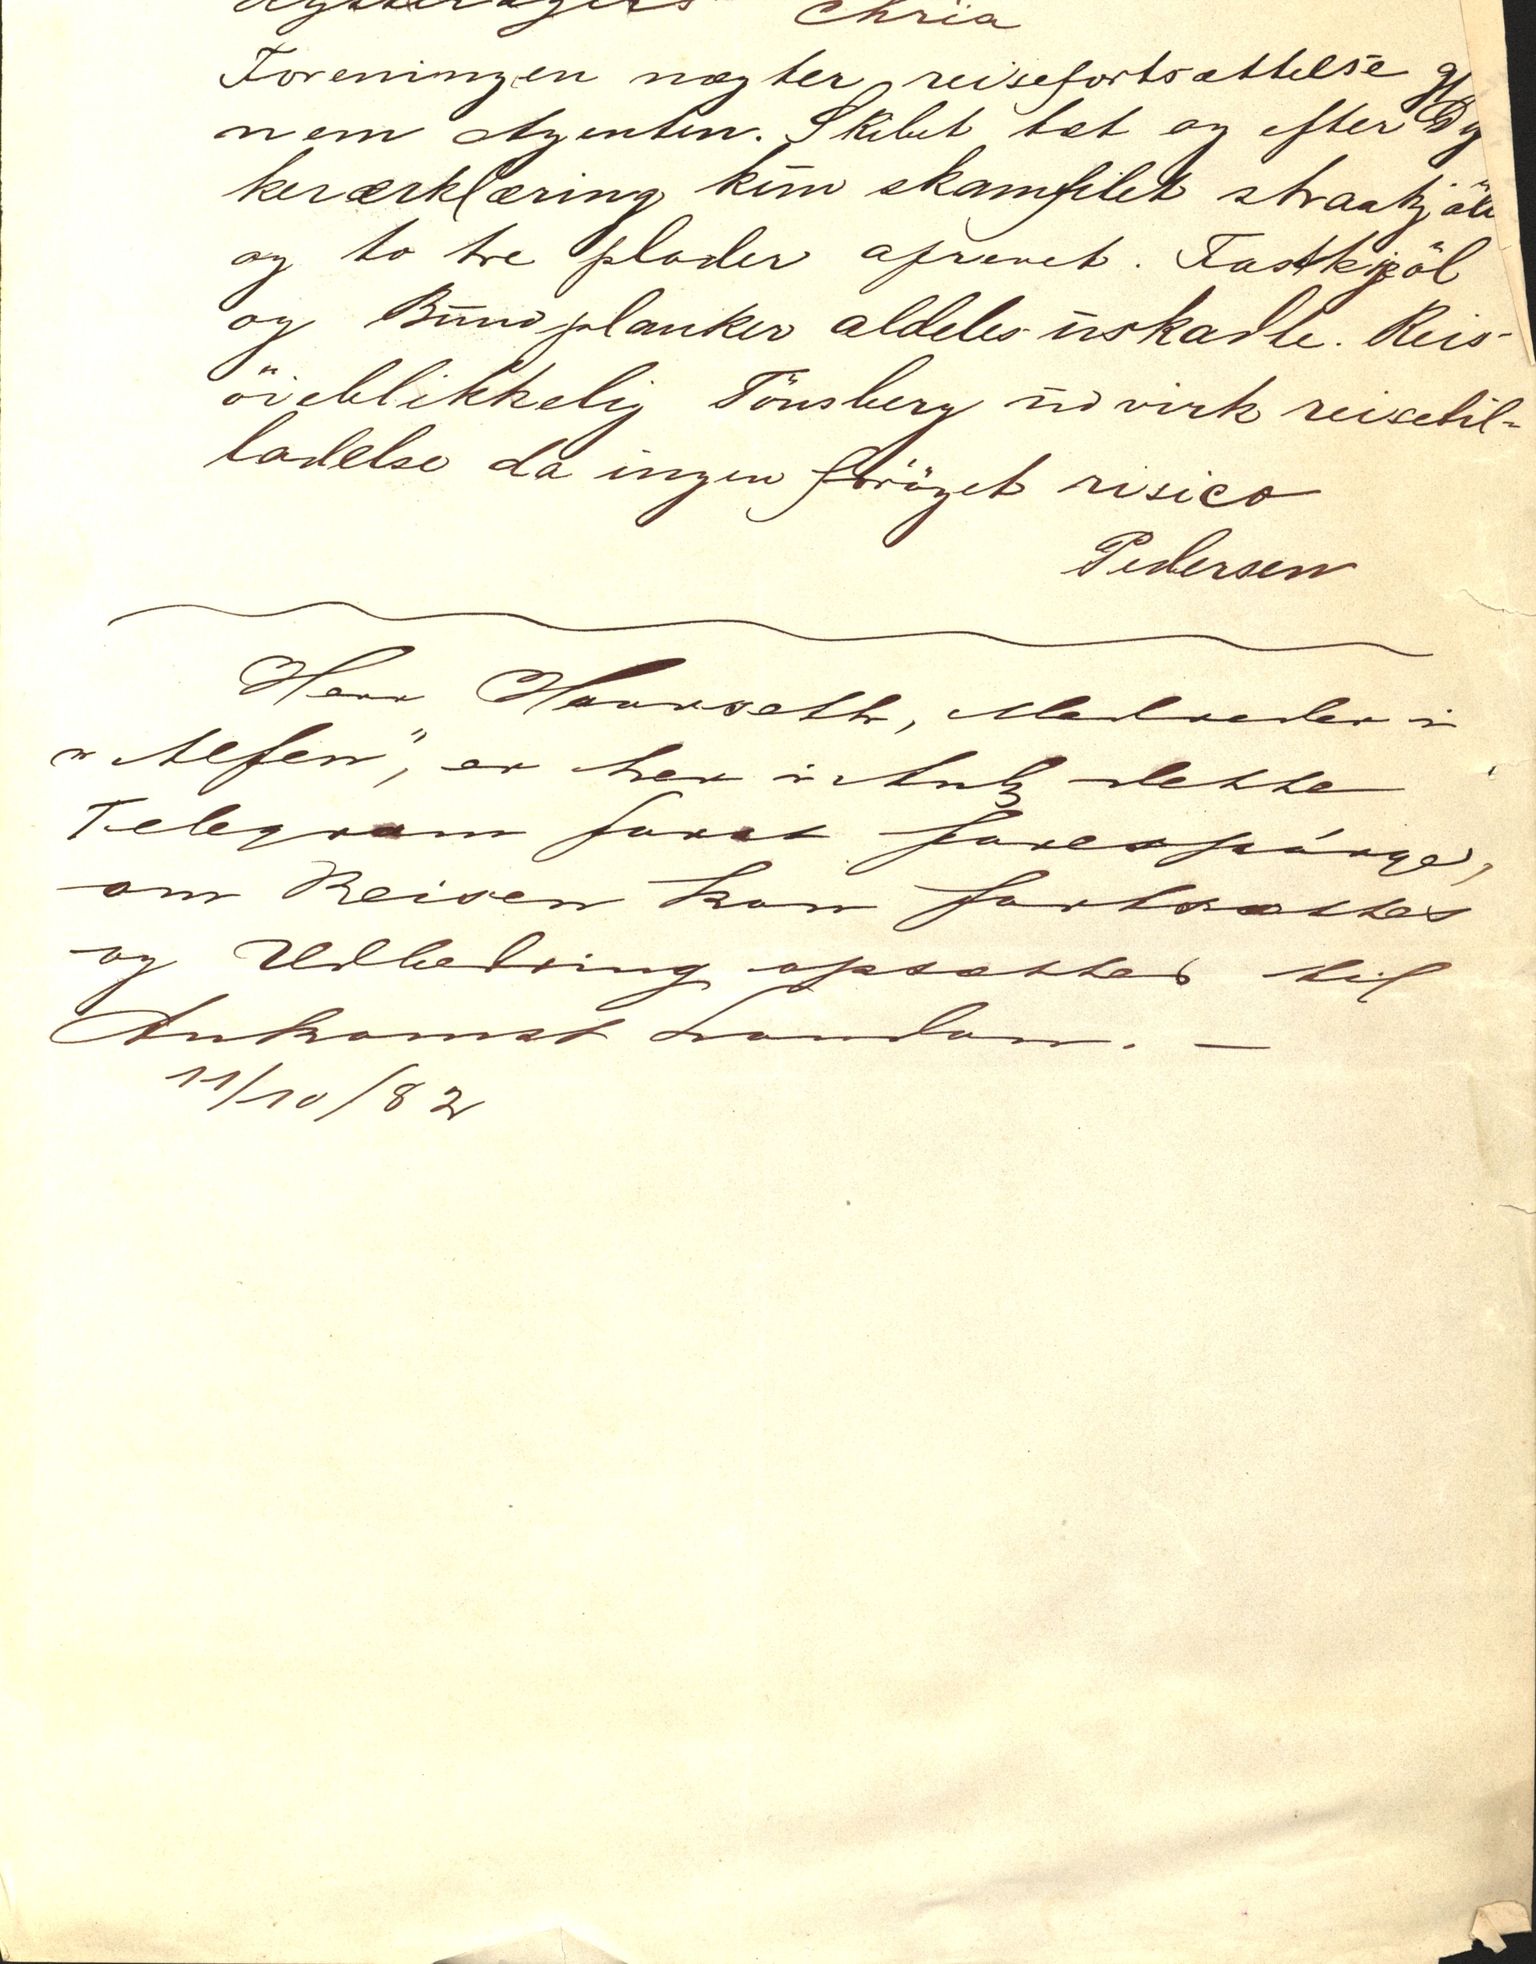 Chria
Foreningen nægter reisefortsættelse gj
nem Agenten. Skibet tæt og efter Dy
kerærklæring kun skamfilet straakjöl
og to tre plader afrevet. Fastkjöl
og Bundplanker aldeles uskadte. Reis
öieblikkelig Tönsberg udvirk reisetil-
ladelse da ingen foröget risico
Pedersen
Herr Haurseth, Medreder i
"Alfen", er her i Anl dette
Telegram forat forespörge,
om Reisen kan fortsættes
og Udbedring opsættes til
Ankomst London. —
11/10/82